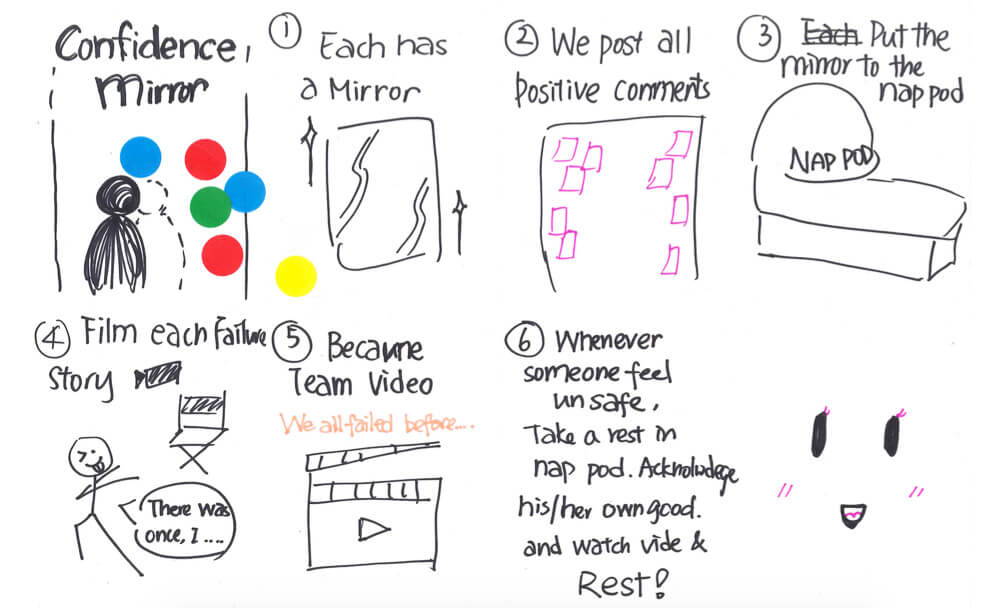 Confidence
Mirror
① Each has
a Mirror
② We post all
positive comments
③ Each Put the
mirror to the
nap pod
NAP POD
④ Film each failure
story
There was
once, I ....
⑤ Became
Team Video
We all failed before....
⑥ Whenever
someone feel
unsafe,
Take a rest in
nap pod. Acknolwdege
his/her own good.
and watch vide &
Rest!